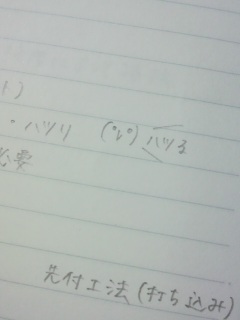 1)
・ハツリ (°ν°) ハツる
必要
先付工法(打ち込み)